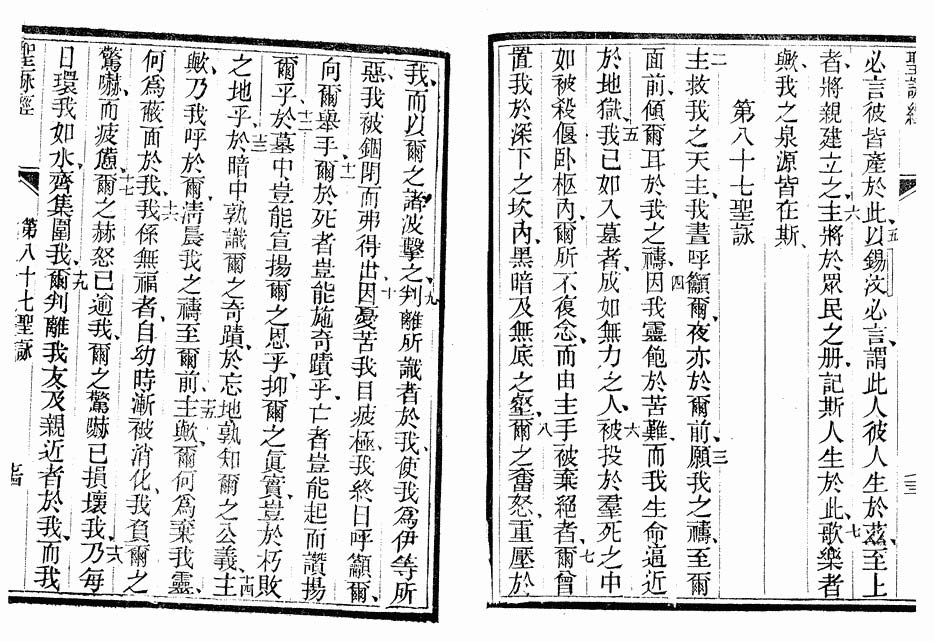 聖詠經
必言彼皆產於此五以錫汝必言謂此人彼人生於茲至上
者將親建立之六主將於眾民之册記斯人生於此七歌樂者
歟我之泉源皆在斯
第八十七聖詠
二主救我之天主我晝呼籲爾夜亦於爾前三願我之禱至爾
面前傾爾耳於我之禱四因我靈飽於苦難而我生命逼近
於地獄五我已如入墓者成如無力之人六被投於羣死之中
如被殺偃臥柩內爾所不復念而由主手被棄絕者七爾曾
置我於深下之坎內黑暗及無底之壑八爾之奮怒重壓於
我而以爾之諸波擊之九判離所識者於我使我為伊等所
惡我被錮閉而弗得出十因憂苦我目疲極我終日呼籲爾
向爾舉手十一爾於死者豈能施奇蹟乎亡者豈能起而讚揚
爾乎十二於墓中豈能宣揚爾之恩乎抑爾之眞實豈於朽敗
之地乎十三於暗中孰識爾之奇蹟於忘地孰知爾之公義十四主
歟乃我呼於爾淸晨我之禱至爾前十五主歟爾何為棄我靈
何為蔽面於我十六我係無福者自幼時漸被消化我負爾之
驚嚇而疲憊十七爾之赫怒已逾我爾之驚嚇已損壞我十八乃每
日環我如水齊集圍我十九爾判離我友及親近者於我而我
聖詠經
第八十七聖詠